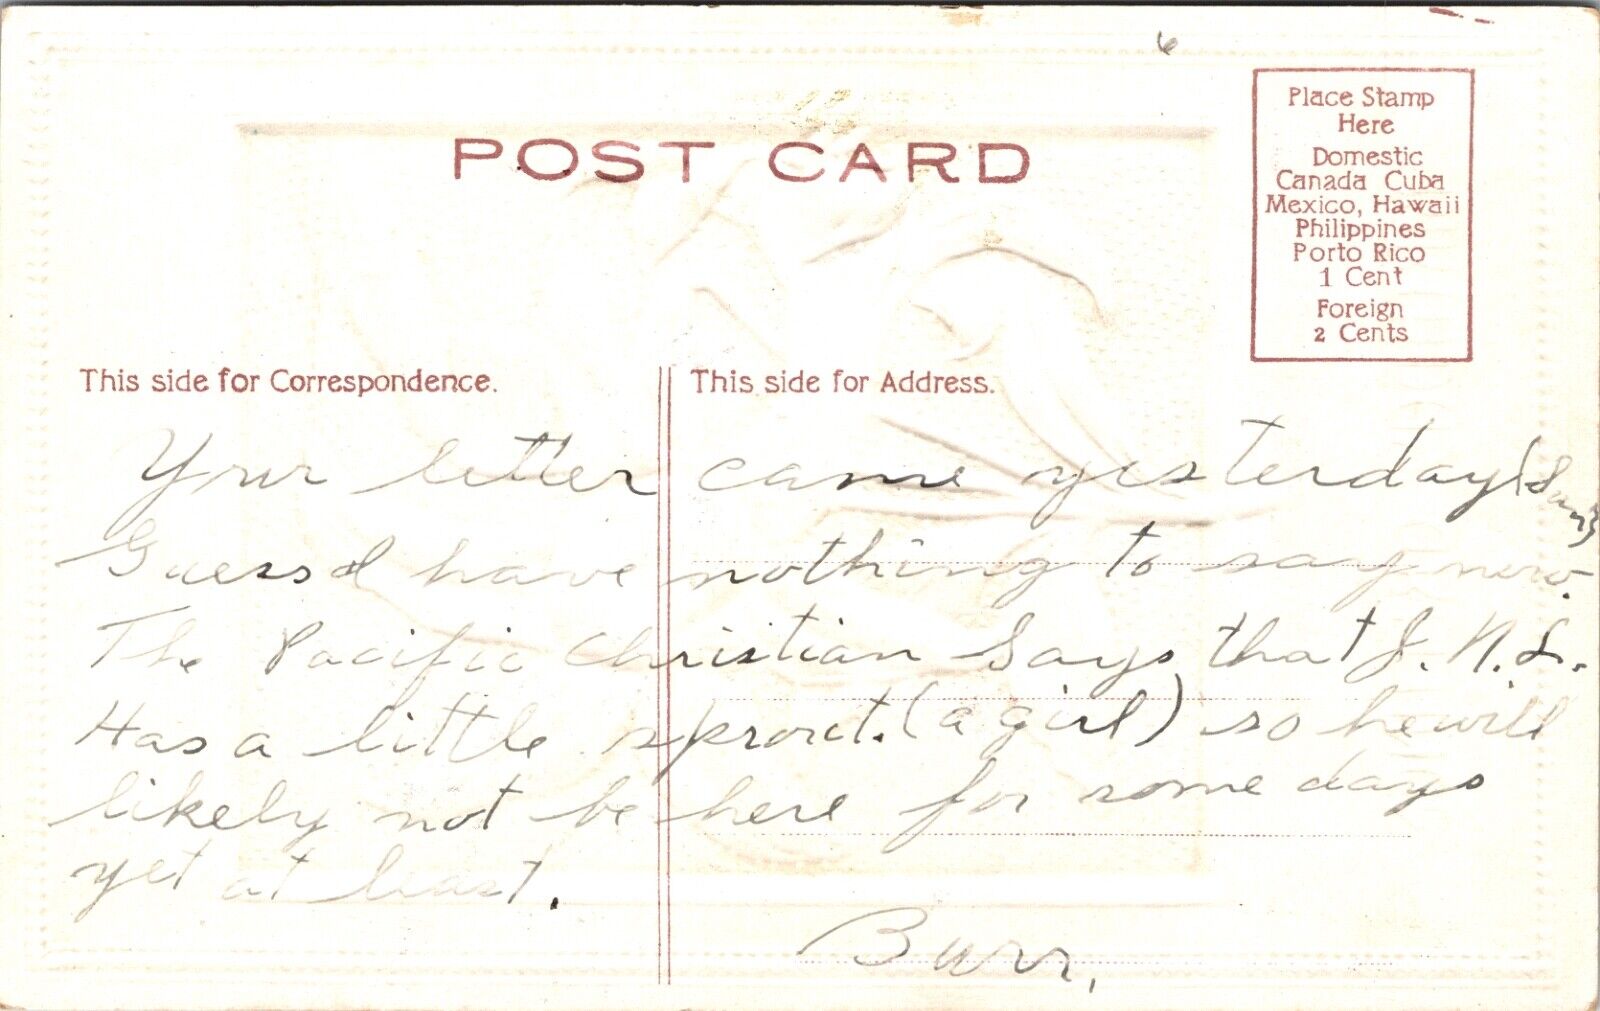 POST CARD
Place Stamp
Here
Domestic
Canada Cuba
Mexico, Hawaii
Philippines
Porto Rico
1 Cent
Foreign
2 Cents
This side for Correspondence.
This side for Address.
Your letter came yesterday (Sun)
Guess I have nothing to say now.
The Pacific Christian Says that J. N. L.
Has a little sprout. (a girl) so he will
likely not be here for some days
yet at least.
Burr,